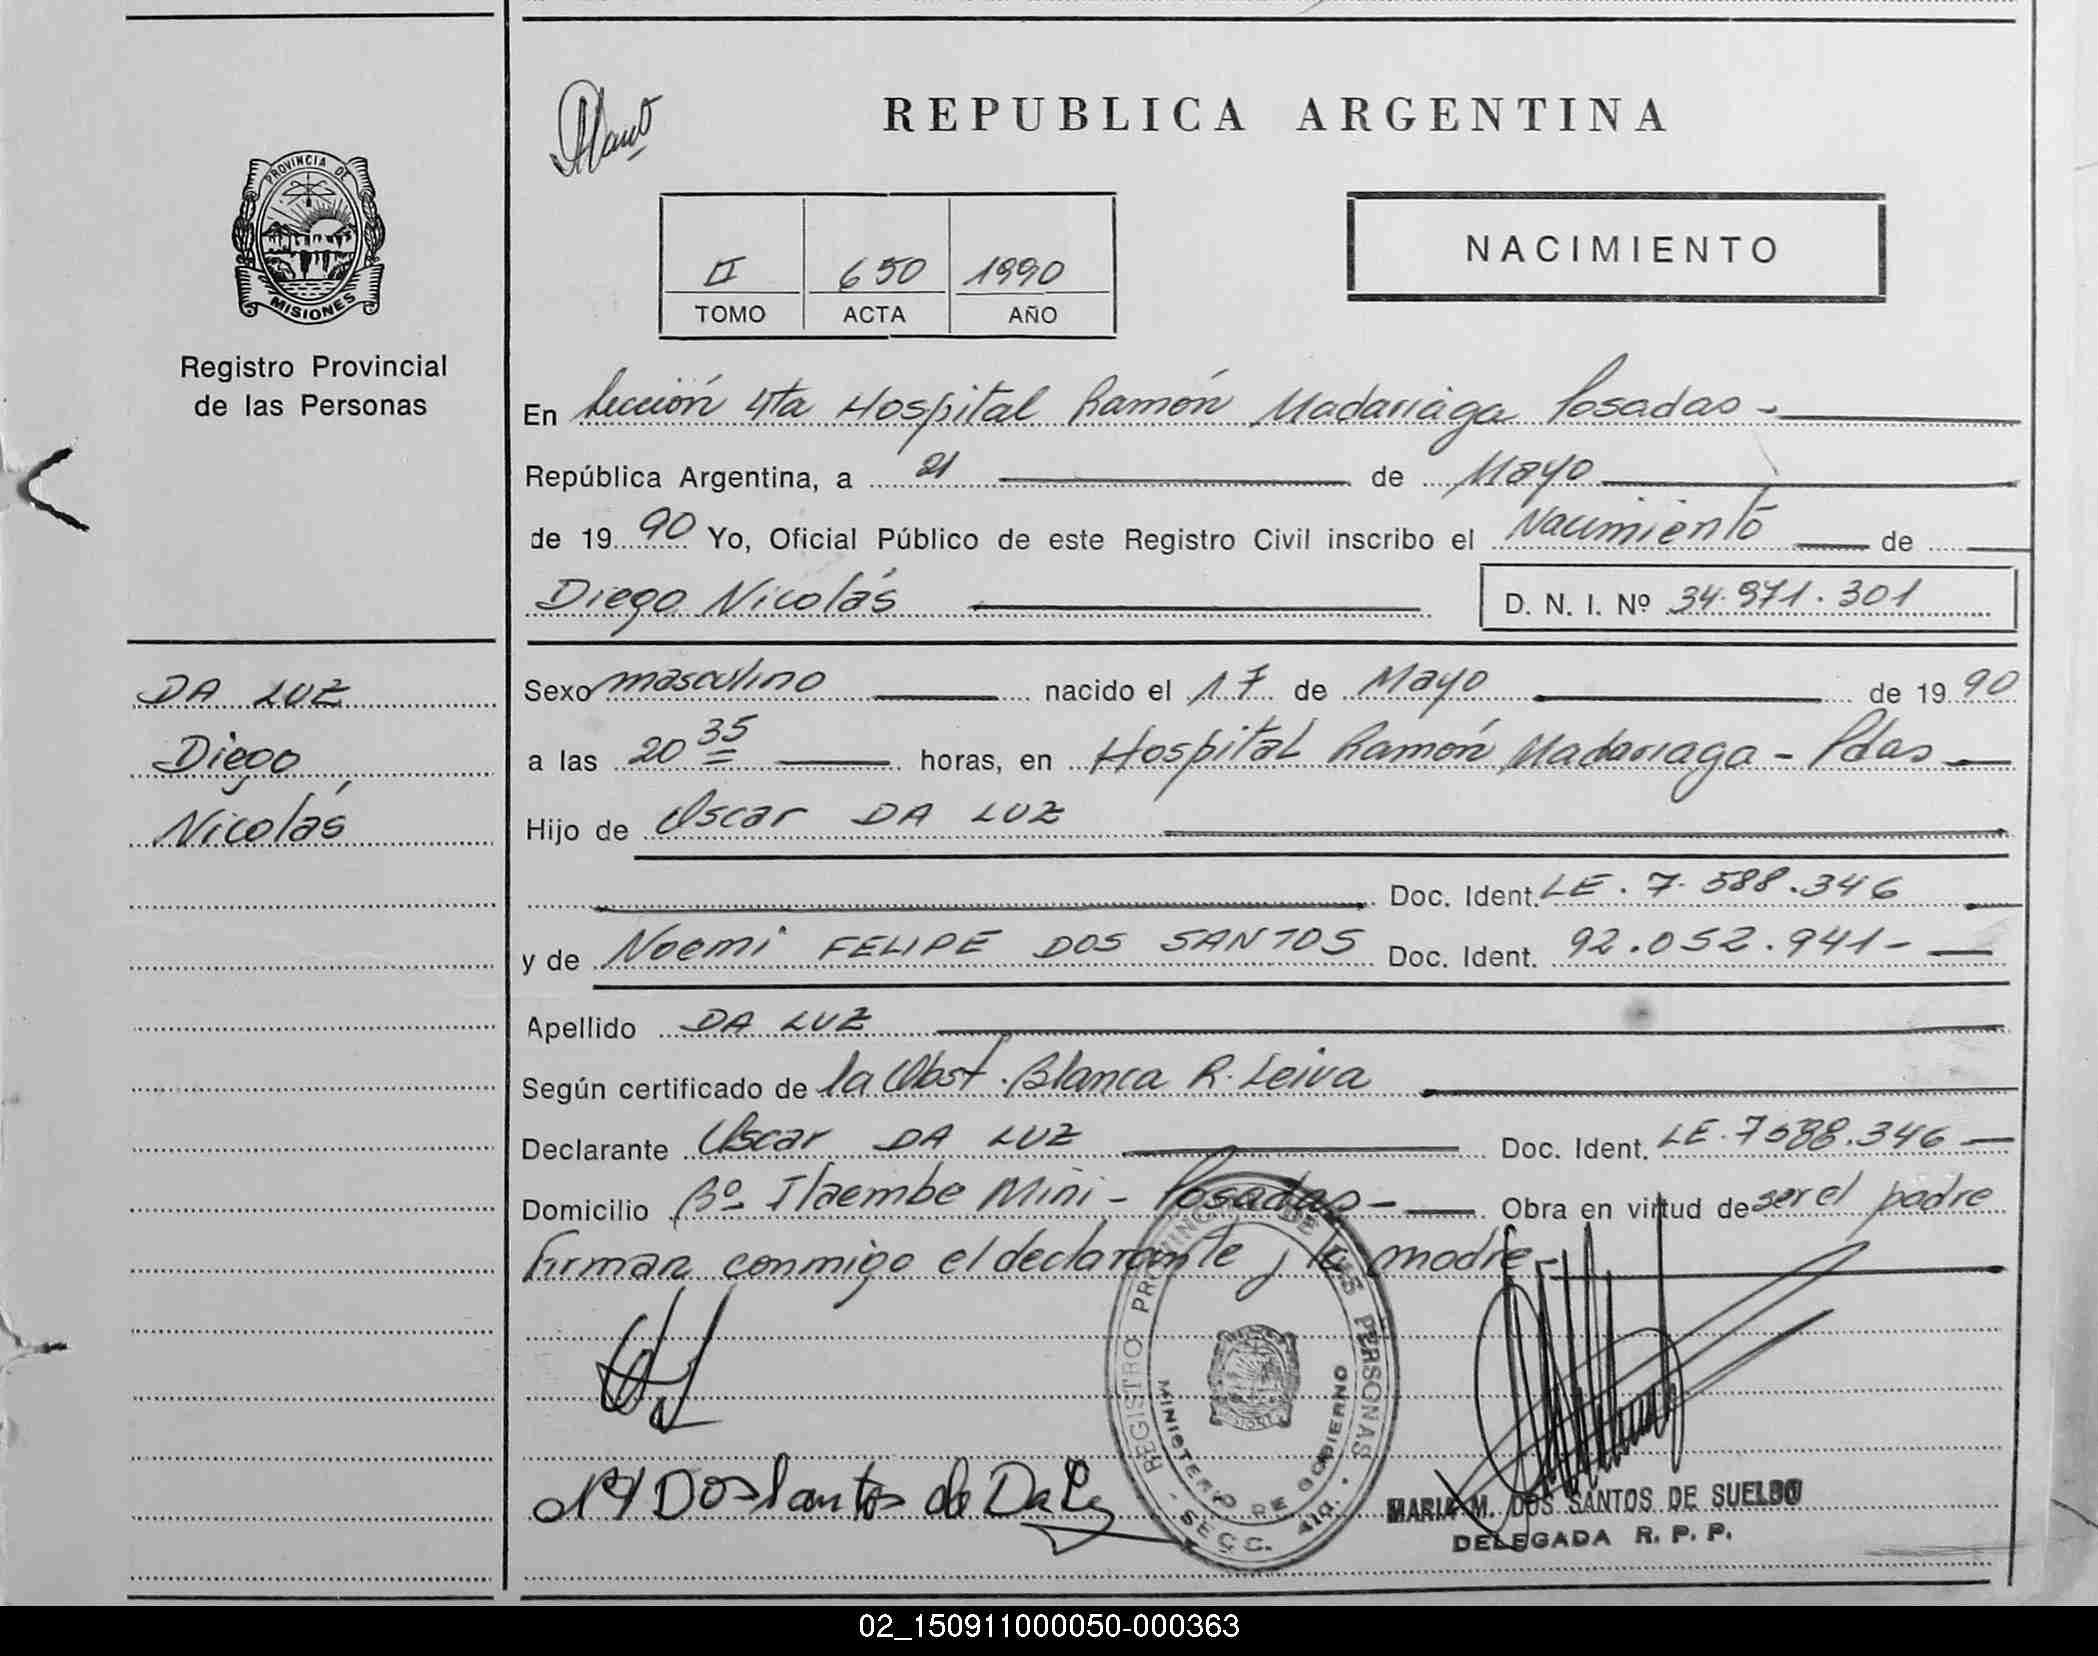 REPUBLICA ARGENTINA
PROVINCIA DE
MISIONES
Registro Provincial
de las Personas
II 650 1990
TOMO ACTA AÑO
NACIMIENTO
En Sección 4ta Hospital Ramón Madariaga Posadas -
República Argentina, a 21 de Mayo
de 1990 Yo, Oficial Público de este Registro Civil inscribo el Nacimiento de
Diego Nicolás D. N. I. Nº 34.971.301
DA LUZ
Diego
Nicolás
Sexo masculino nacido el 17 de Mayo de 1990
a las 20 35 horas, en Hospital Ramón Madariaga - Pdas
Hijo de Oscar DA LUZ
Doc. Ident. LE. 7.588.346
y de Noemi FELIPE DOS SANTOS Doc. Ident. 92.052.941-
Apellido DA LUZ
Según certificado de la Obst. Blanca R. Leiva
Declarante Oscar DA LUZ Doc. Ident. LE. 7588.346
Domicilio Bº Itaembe Mini - Posadas - Obra en virtud de ser el padre
Firman conmigo el declarante y la madre -
REGISTRO PROVINCIAL DE LAS PERSONAS
MINISTERIO DE GOBIERNO
SECC. 4ta.
N Dos Santos de Da Luz
MARIA M. DOS SANTOS DE SUELDO
DELEGADA R. P. P.
02_150911000050-000363